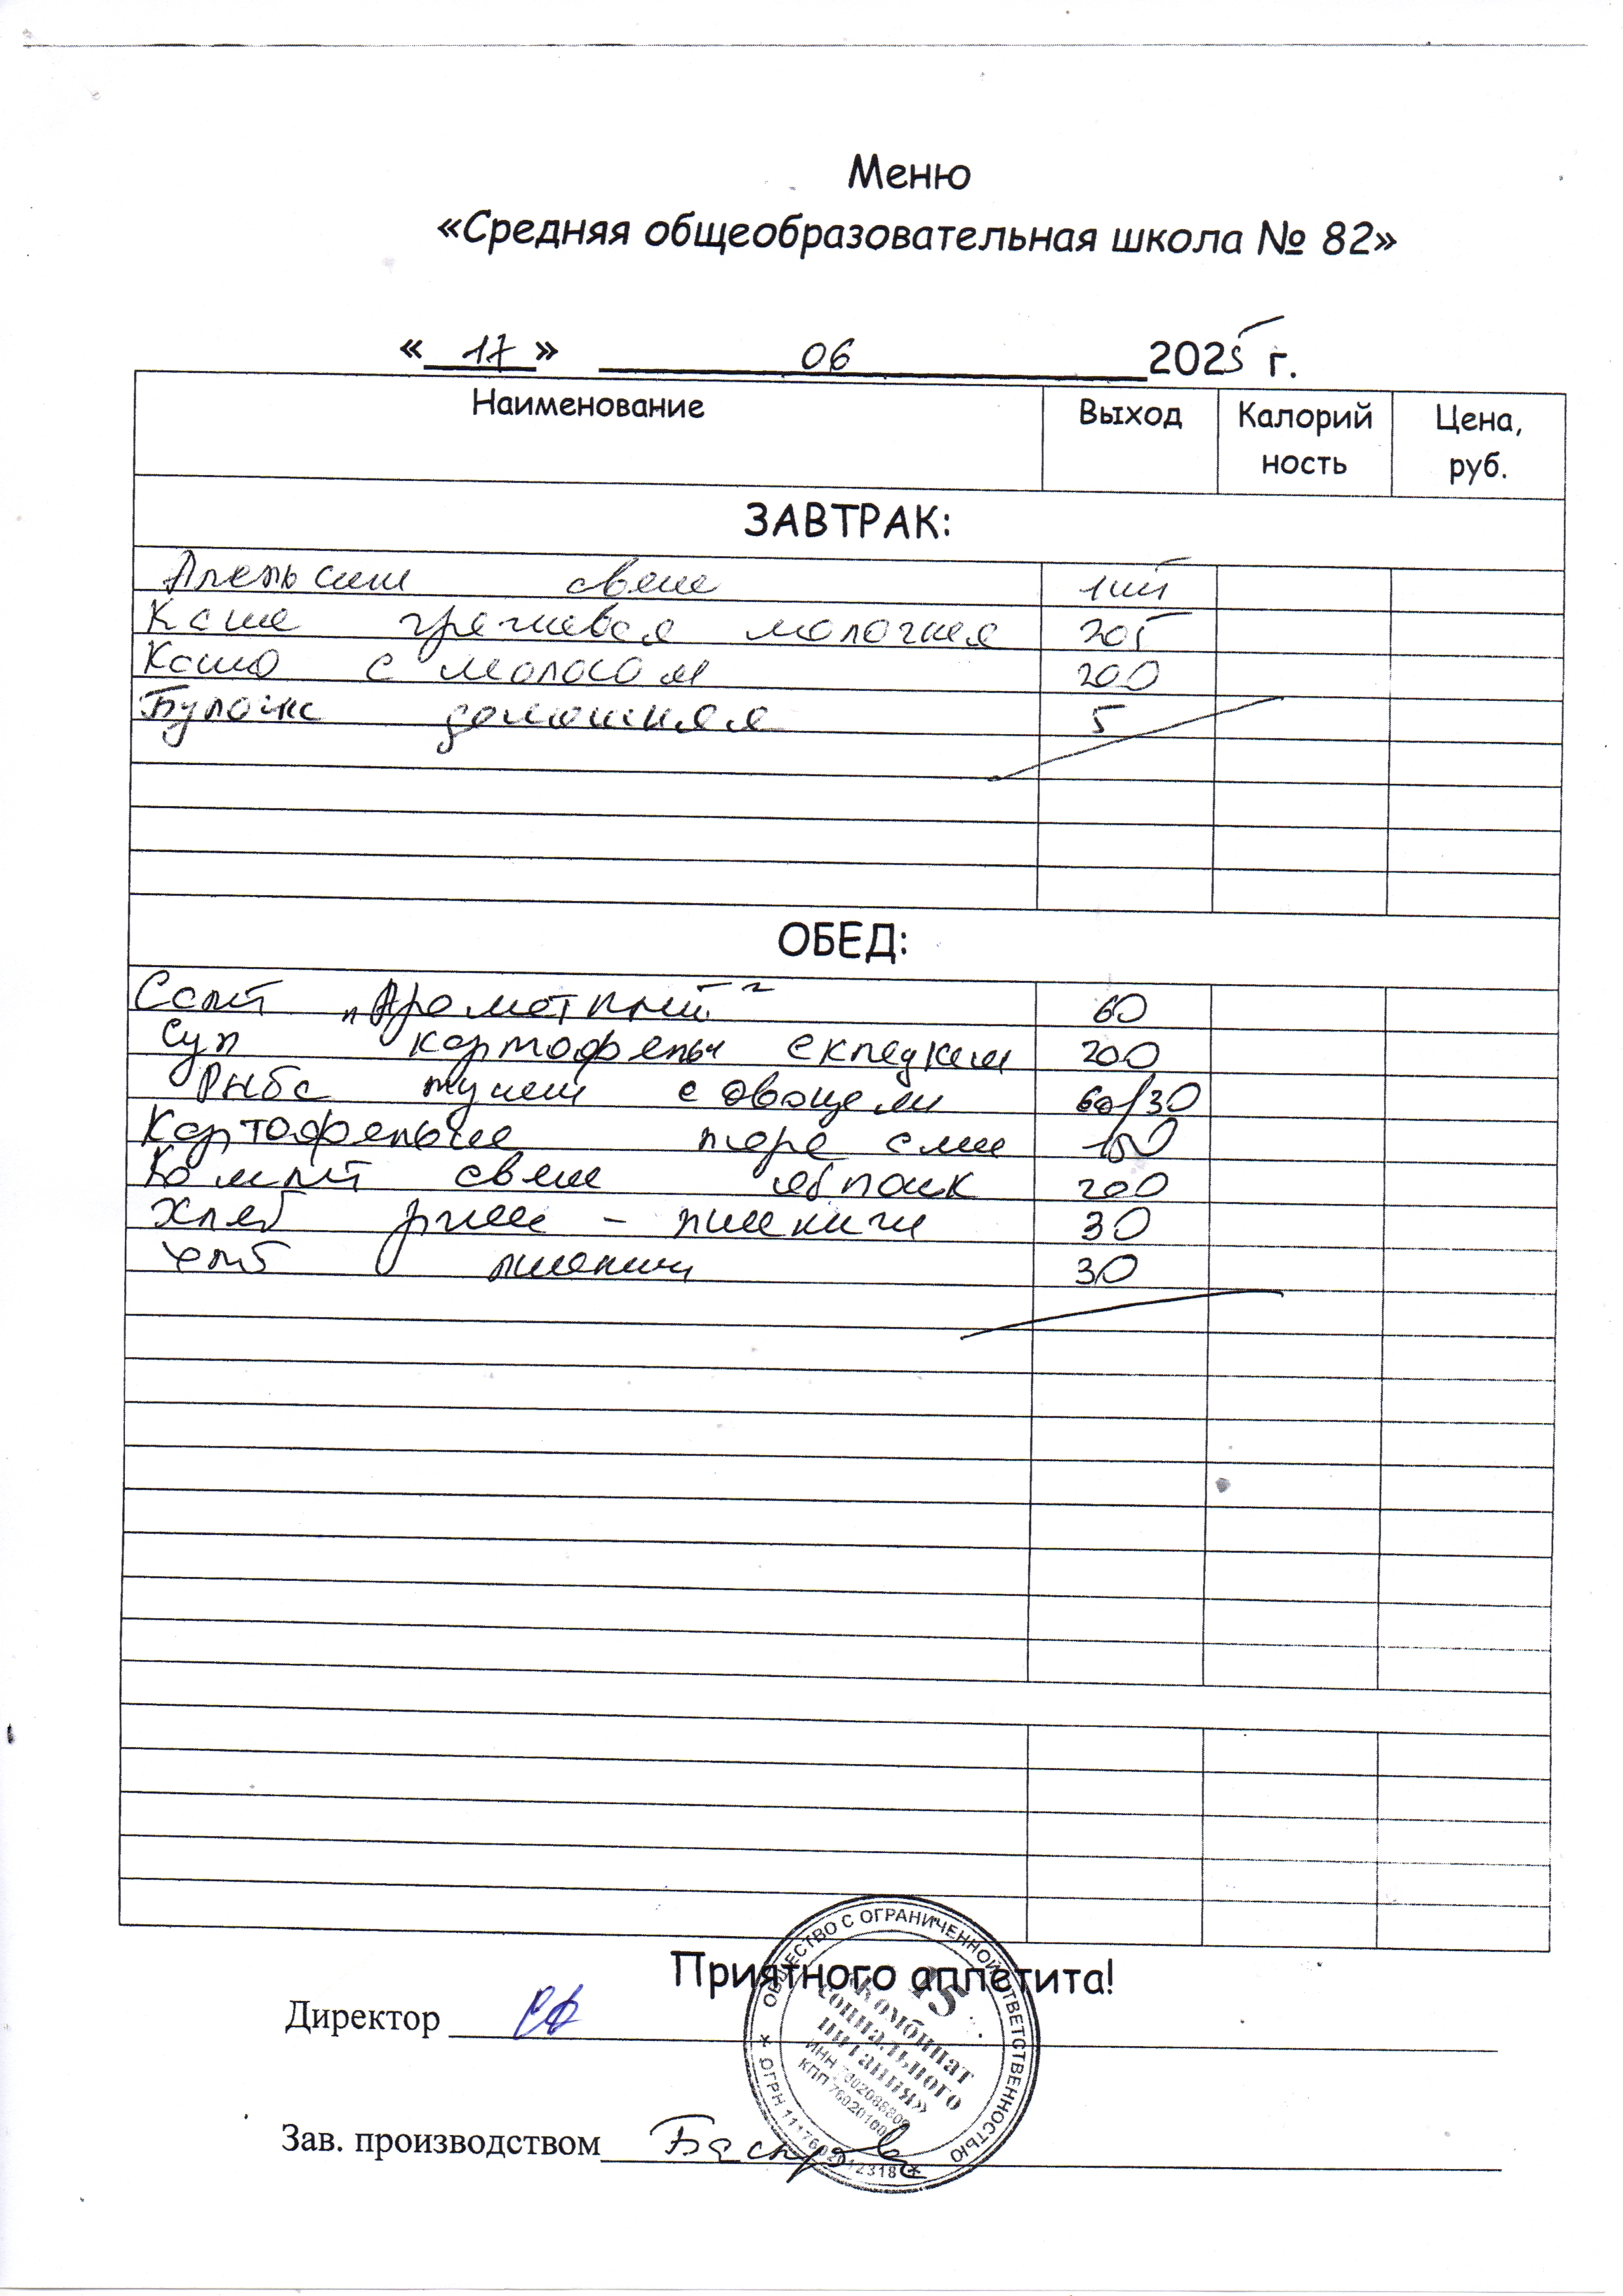 Меню
«Средняя общеобразовательная школа № 82»
« 17 » 06 2025 г.
Наименование Выход Калорийность Цена, руб.
ЗАВТРАК:
Апельсин свеж 1шт
Каша гречневая молочная 205
Какао с молоком 200
Булочка домашняя 5
ОБЕД:
Салат „Ароматный" 60
Суп картофельн с клецками 200
Рыба тушен с овощами 60/30
Картофельное пюре 150
Компот свеж яблок 200
Хлеб ржан - пшенич 30
Хлеб пшенич 30
Приятного аппетита!
Директор
Зав. производством
ОБЩЕСТВО С ОГРАНИЧЕННОЙ ОТВЕТСТВЕННОСТЬЮ
15
«Комбинат
социального
питания»
ИНН
КПП
ОГРН